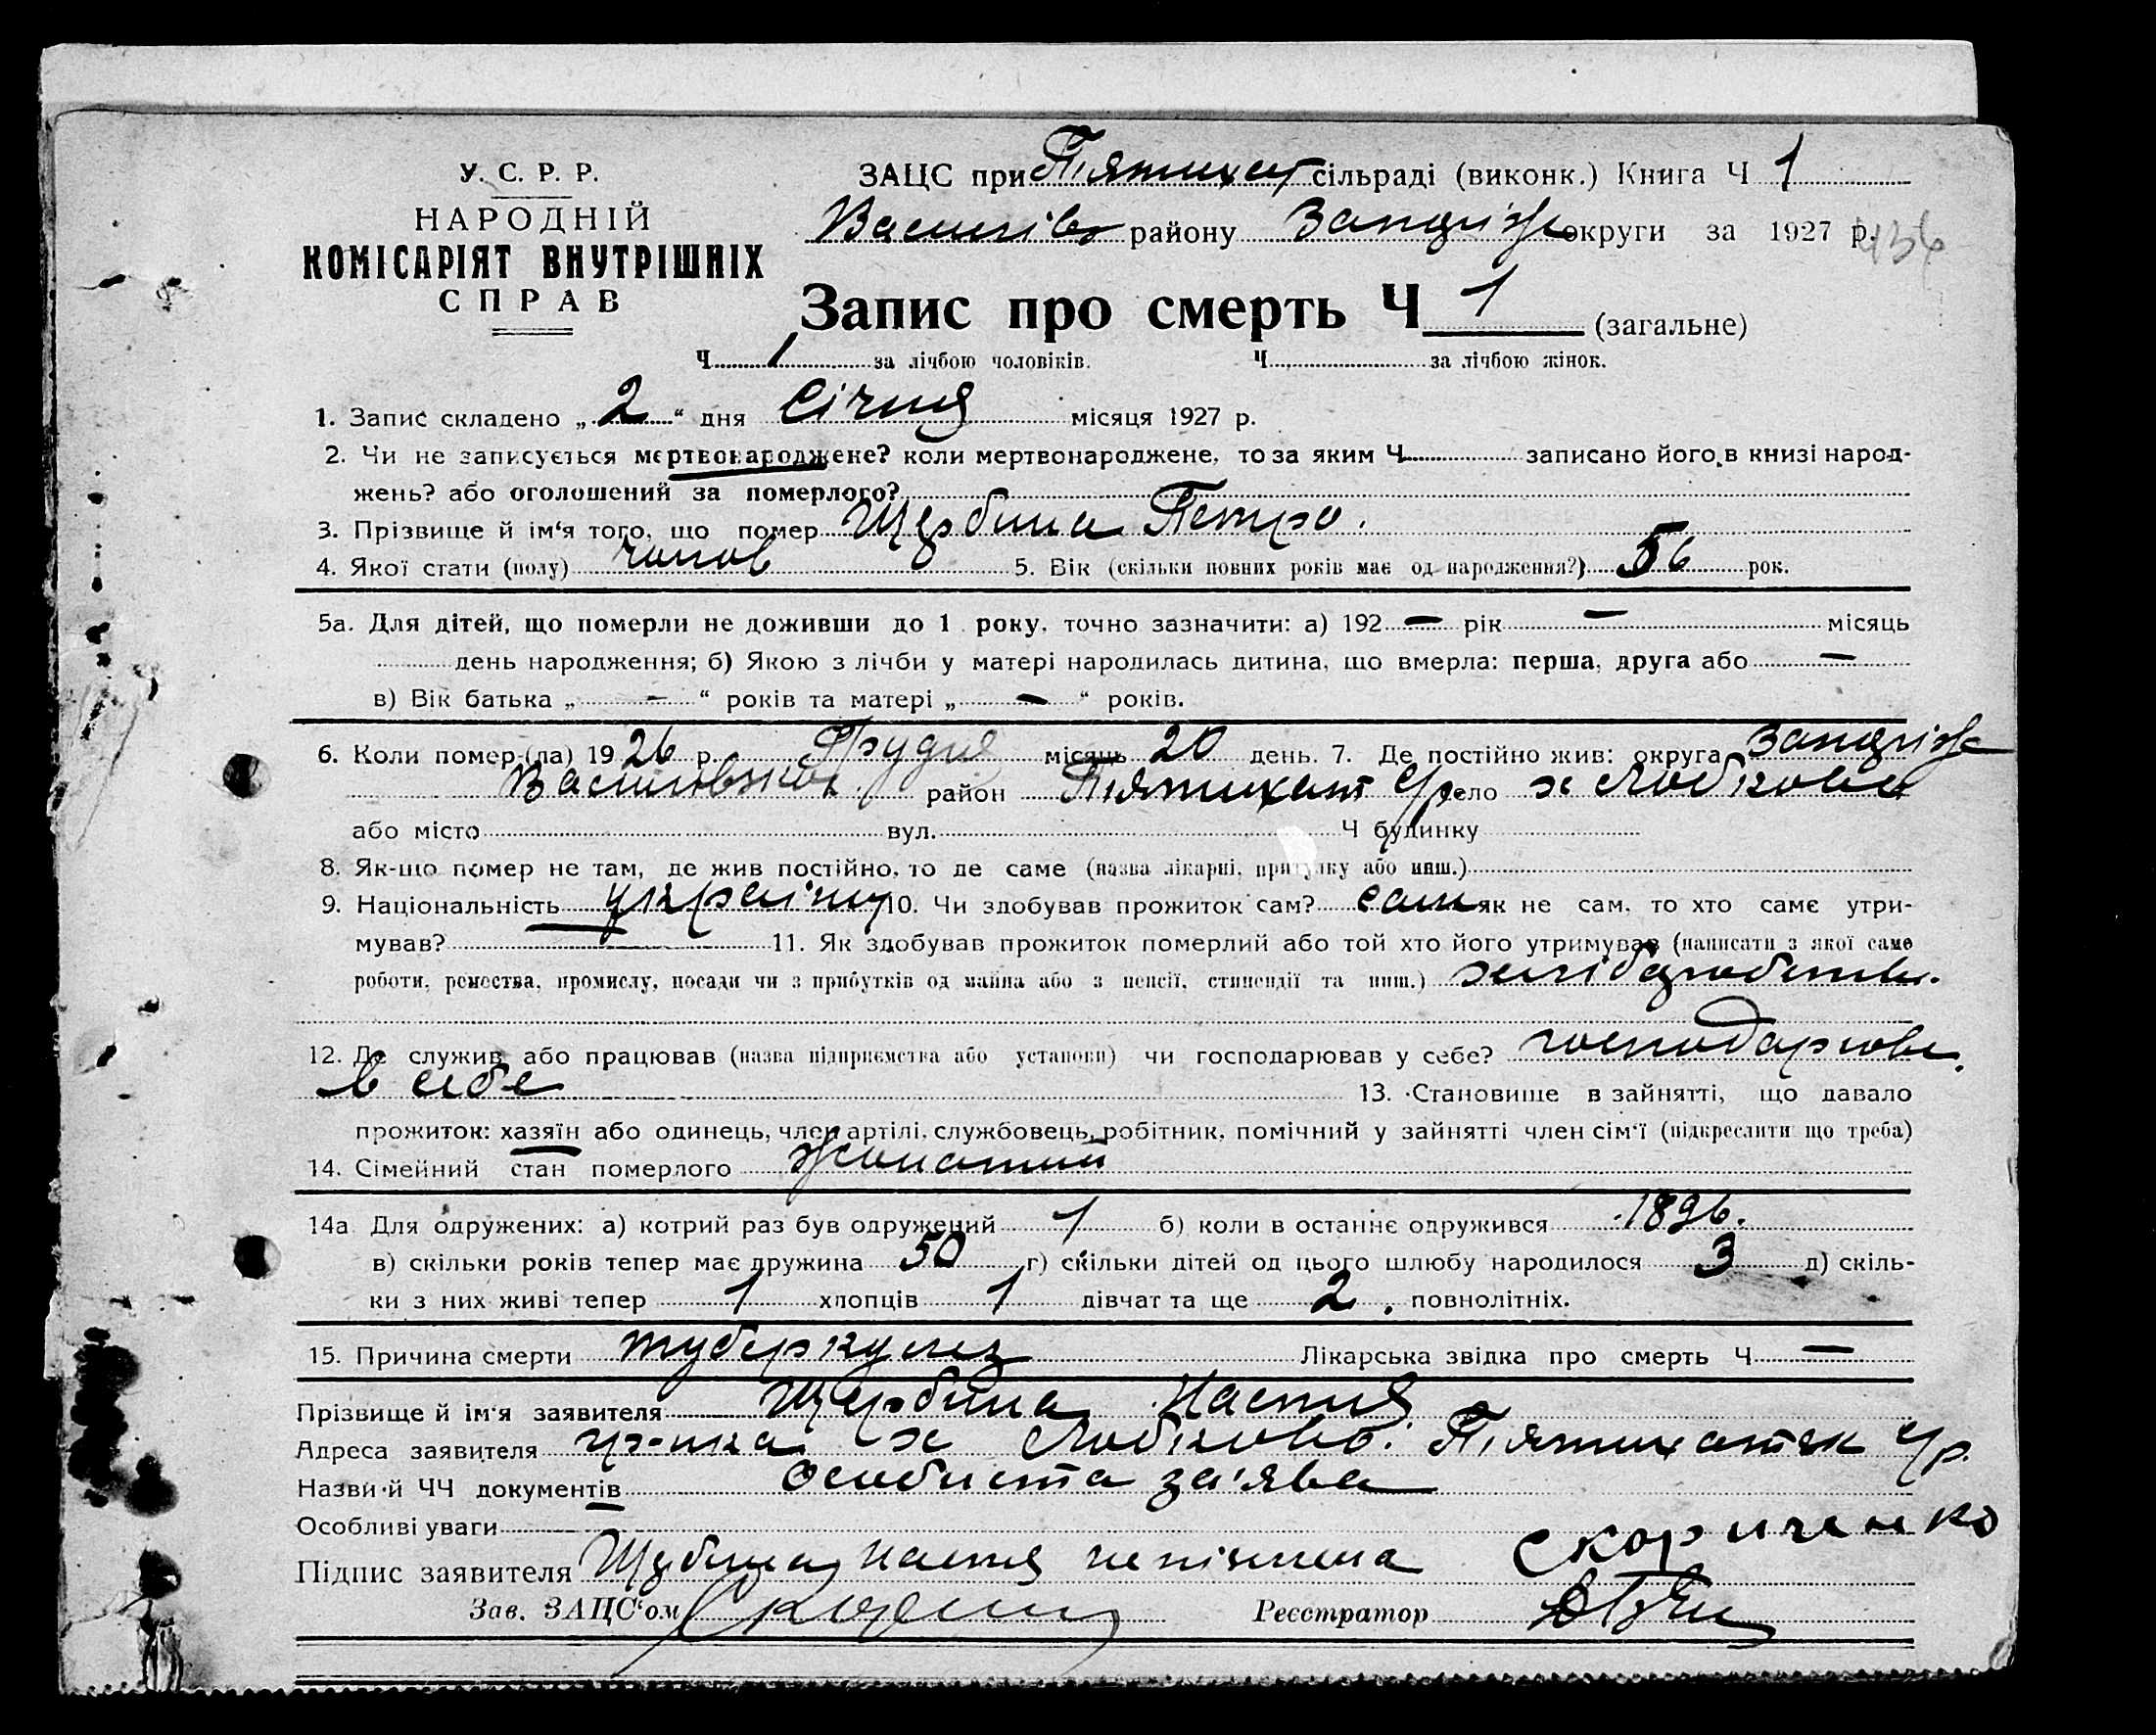 У. С. Р. Р.
НАРОДНІЙ
КОМІСАРІЯТ ВНУТРІШНІХ
СПРАВ
ЗАЦС при Пятихат сільраді (виконк.) Книга Ч 1
Василів району Запоріж округи за 1927 р.
Запис про смерть Ч 1 (загальне)
Ч 1 за лічбою чоловіків. Ч. за лічбою жінок.
1. Запис складено „ 2 “ дня Січня місяця 1927 р.
2. Чи не записується мертвонароджене? коли мертвонароджене, то за яким Ч записано його в книзі народ-
жень? або оголошений за померлого?
3. Прізвище й ім‘я того, що помер Щербина Петро.
4. Якої стати (полу) чолов 5. Вік (скільки повних років має од народження?) 56 рок.
5а. Для дітей, що померли не доживши до 1 року, точно зазначити: а) 192 — рік — місяць
день народження; б) Якою з лічби у матері народилась дитина, що вмерла: перша, друга або —
в) Вік батька „ — “ років та матері „ — “ років.
6. Коли помер-(ла) 1926 р. Грудня місяць 20 день. 7. Де постійно жив: округа Запоріж
район Пятихат с/р. село х
або місто вул. Ч будинку
8. Як-що помер не там, де жив постійно, то де саме (назва лікарні, притулку або инш.)
9. Національність 10. Чи здобував прожиток сам? сам як не сам, то хто саме утри-
мував? 11. Як здобував прожиток померлий або той хто його утримував (написати з якої саме
роботи, ремества, промислу, посади чи з прибутків од майна або з пенсії, стипендії та инш.)
12. Де служив або працював (назва підприємства або установи) чи господарював у себе? господарював
в себе 13. Становище в зайнятті, що давало
прожиток: хазяїн або одинець, член артілі, службовець, робітник, помічний у зайнятті член сім‘ї (підкреслити що треба)
14. Сімейний стан померлого жонатий
14а Для одружених: а) котрий раз був одружений 1 б) коли в останнє одружився 1896.
в) скільки років тепер має дружина 50 г) скільки дітей од цього шлюбу народилося 3 д) скіль-
ки з них живі тепер 1 хлопців 1 дівчат та ще 2. повнолітніх.
15. Причина смерти туберкулез Лікарська звідка про смерть Ч —
Прізвище й ім‘я заявителя Щербина Настя
Адреса заявителя гр-нка х с/р.
Назви й ЧЧ документів Особиста за'ява
Особливі уваги
Підпис заявителя Настя Скориченко
Зав. ЗАЦС‘ом Реєстратор